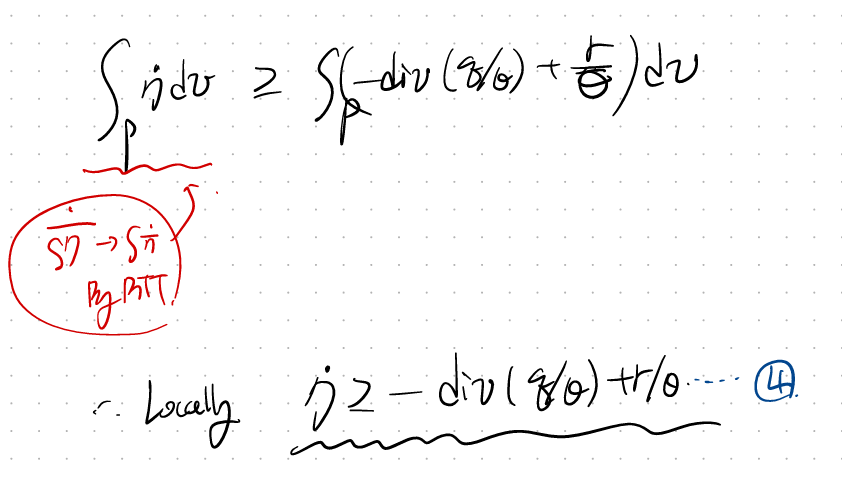 ∫_p η̇ dv ≥ ∫_p (-div (q/θ) + r/θ) dv
∫η̇ → ∫η̇
By RTT.
∴ Locally η̇ ≥ - div (q/θ) + r/θ ...... ④